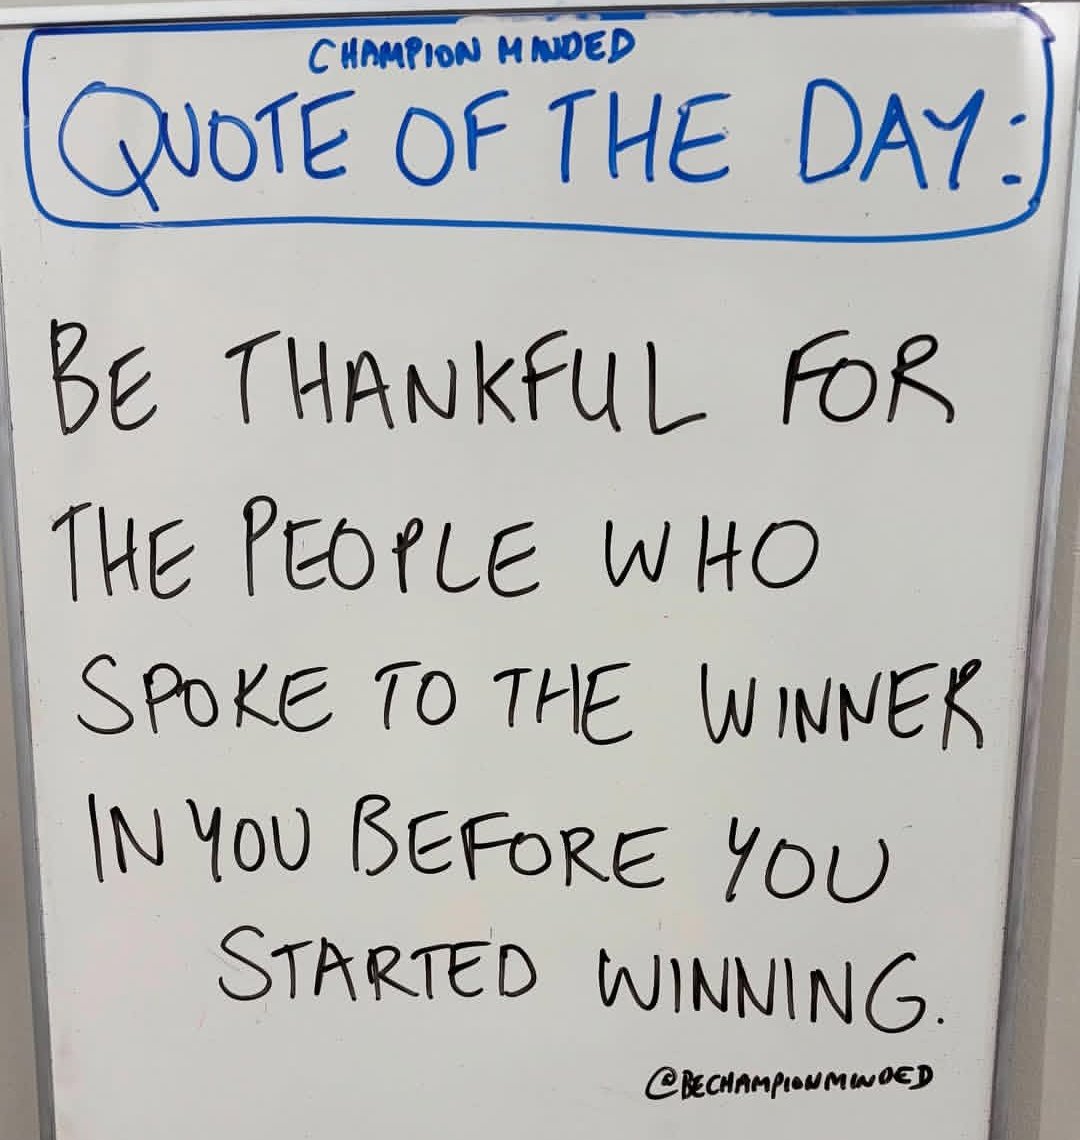 CHAMPION MINDED
QUOTE OF THE DAY:
BE THANKFUL FOR
THE PEOPLE WHO
SPOKE TO THE WINNER
IN YOU BEFORE YOU
STARTED WINNING.
@BECHAMPIONMINDED